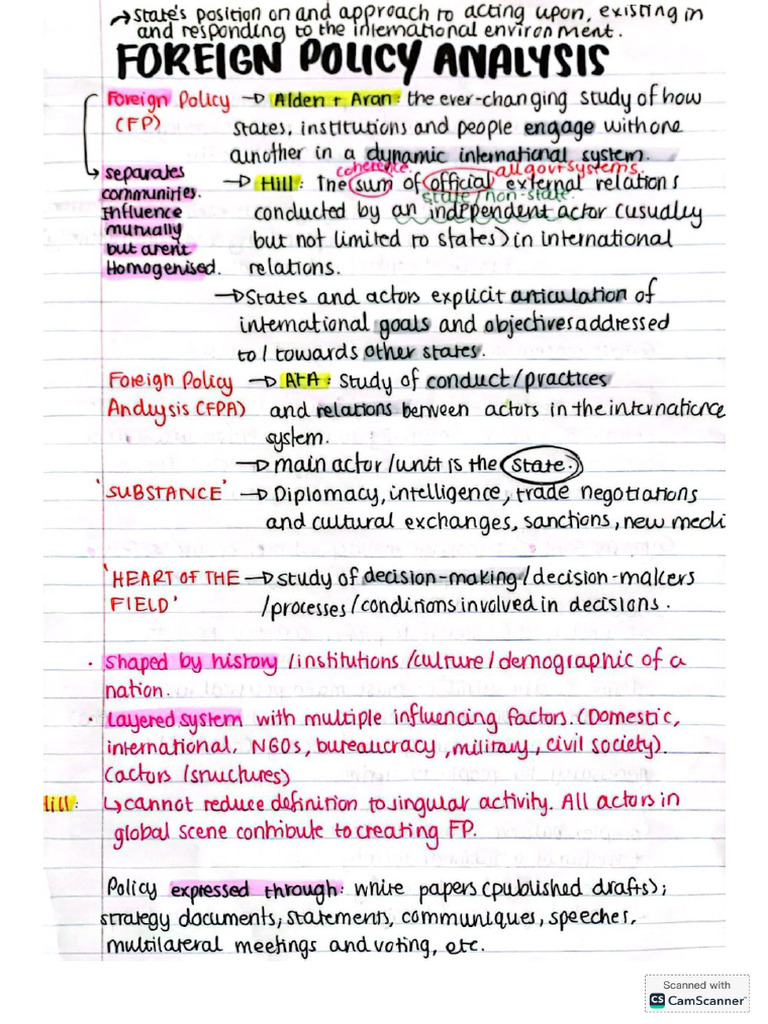 → State's position on and approach to acting upon, existing in
and responding to the international environment.
FOREIGN POLICY ANALYSIS
Foreign Policy → Alden + Aran: the ever-changing study of how
(FP) states, institutions and people engage with one
another in a dynamic international system.
coherence. all govt systems.
separates → Hill: The sum of official external relations
state/non-state.
communities. conducted by an independent actor (usually
Influence
mutually but not limited to states) in international
but arent
Homogenised. relations.
→ States and actors explicit articulation of
international goals and objectives addressed
to / towards other states.
Foreign Policy → A+A: Study of conduct/practices
Analysis (FPA) and relations between actors in the internationce
system.
→ main actor/unit is the State.
'SUBSTANCE' → Diplomacy, intelligence, trade negotiations
and cultural exchanges, sanctions, new medi
'HEART OF THE → study of decision-making/decision-makers
FIELD' /processes/conditions involved in decisions.
· Shaped by history /institutions/culture/demographic of a
nation.
· Layered system with multiple influencing factors. (Domestic,
international, NGOs, bureaucracy, military, civil society).
(actors/structures)
Hill: ↳ cannot reduce definition to singular activity. All actors in
global scene contribute to creating FP.
Policy expressed through: white papers (published drafts);
strategy documents; statements, communiques, speeches,
multilateral meetings and voting, etc.
Scanned with
CS CamScanner